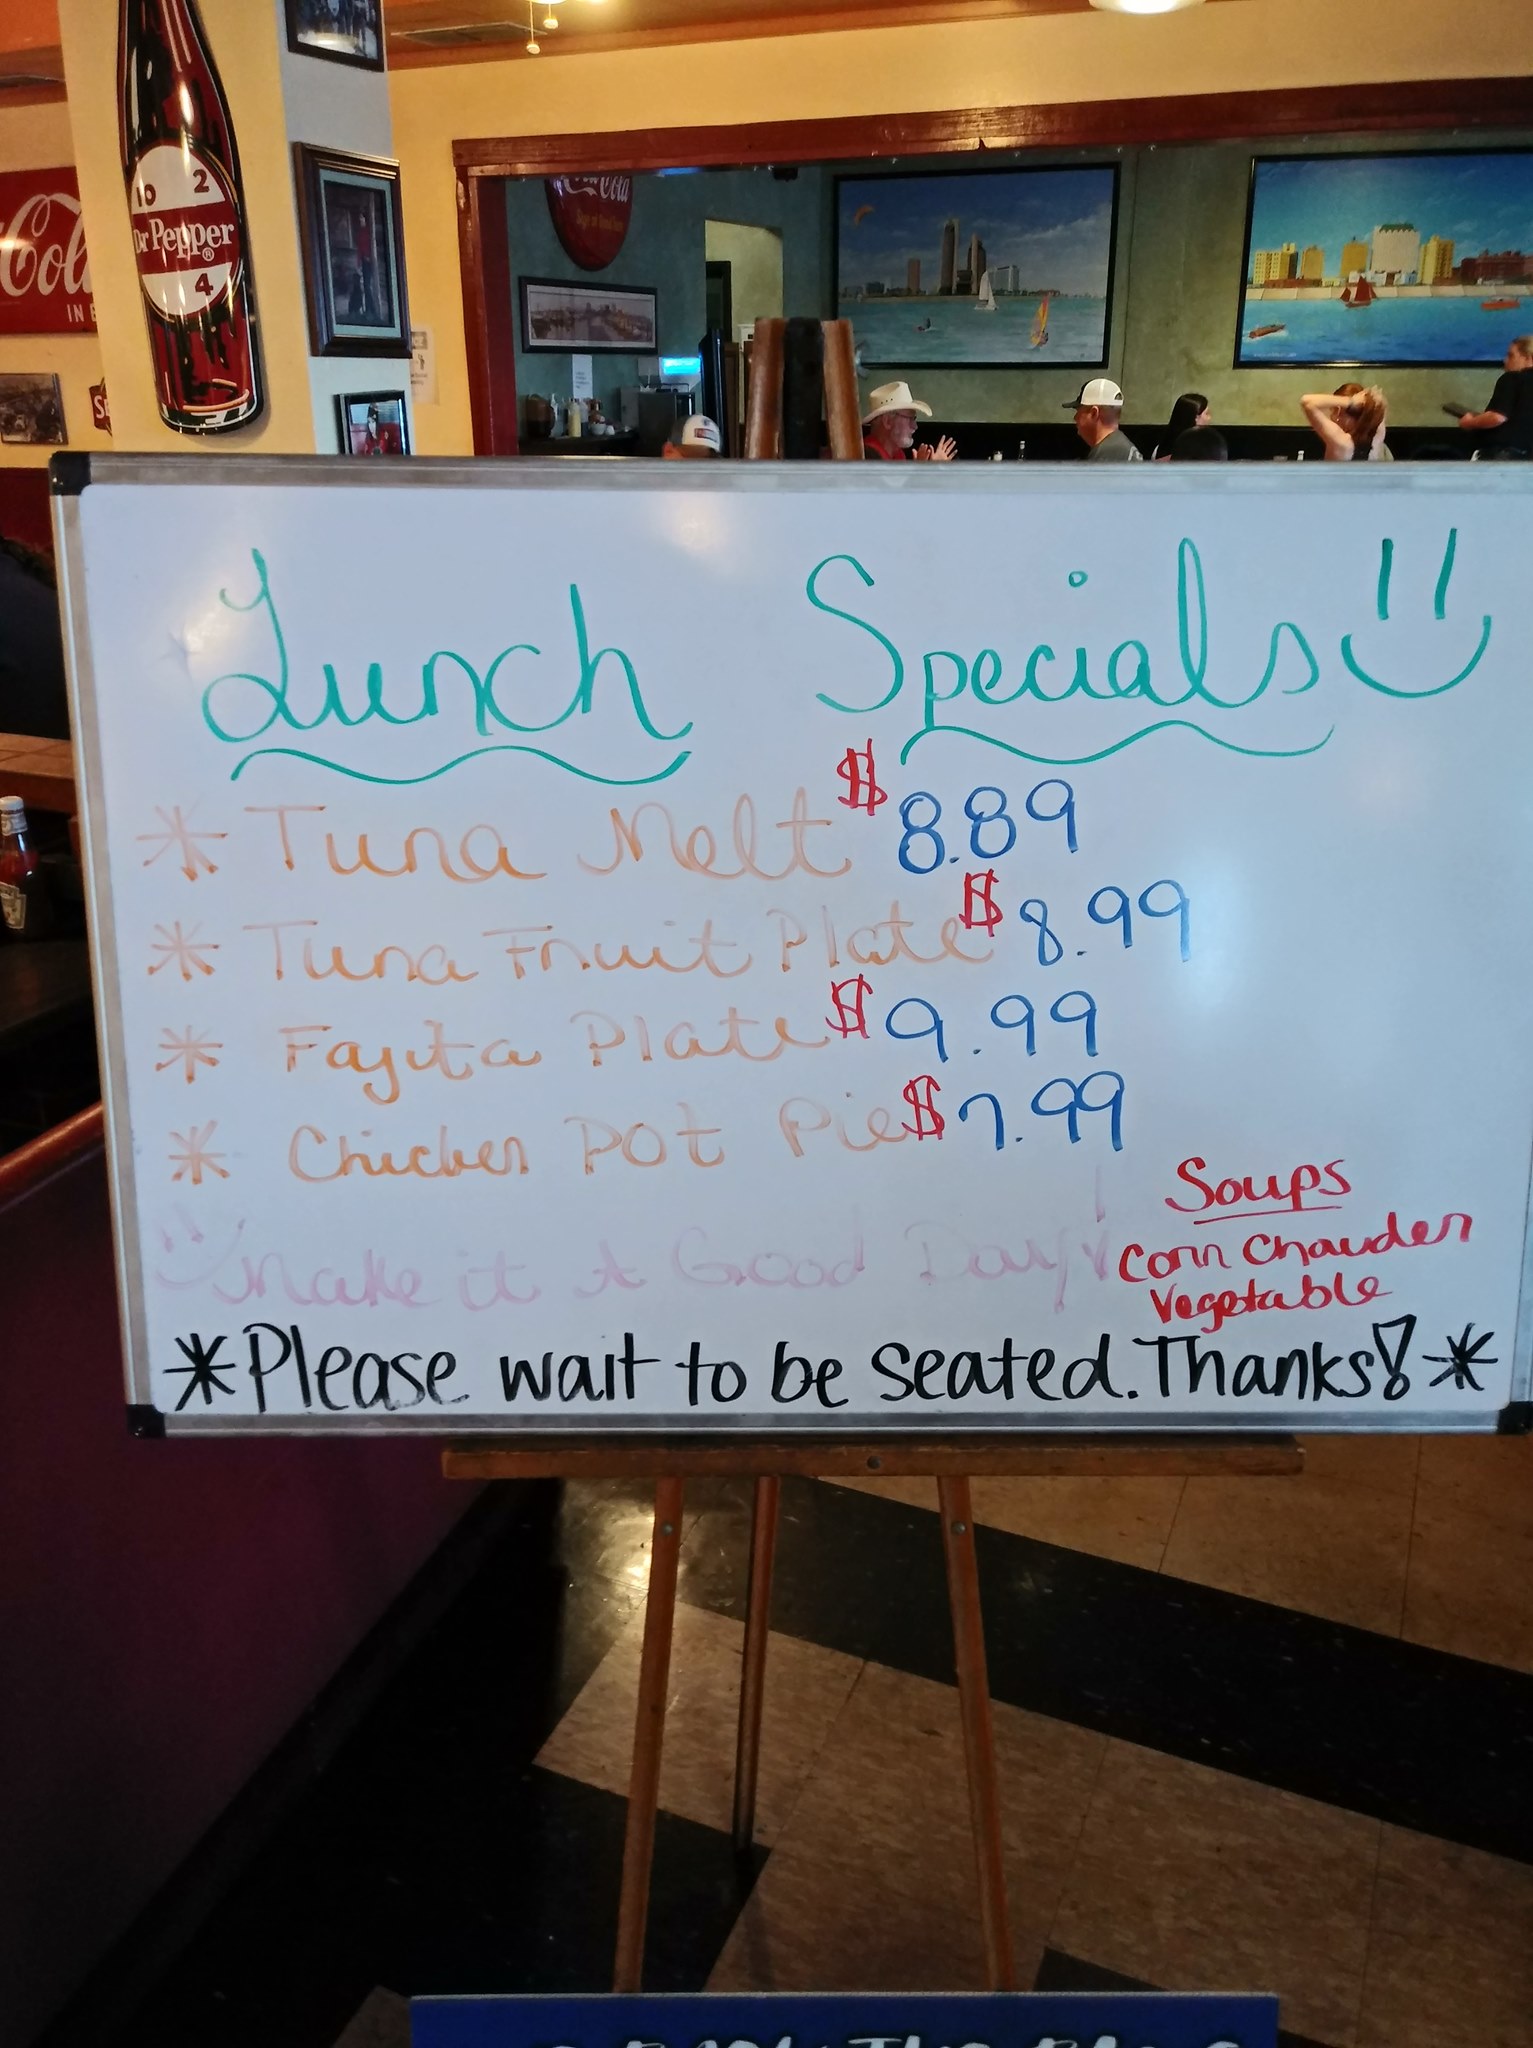 10 2
Dr Pepper®
4
Cola
IN B
Cola
Lunch Specials
* Tuna Melt $8.89
* Tuna Fruit Plate $8.99
* Fajita Plate $9.99
* Chicken POt Pie $7.99
Make it A Good Day!
Soups
Corn Chauder
Vegetable
*Please wait to be seated. Thanks!*